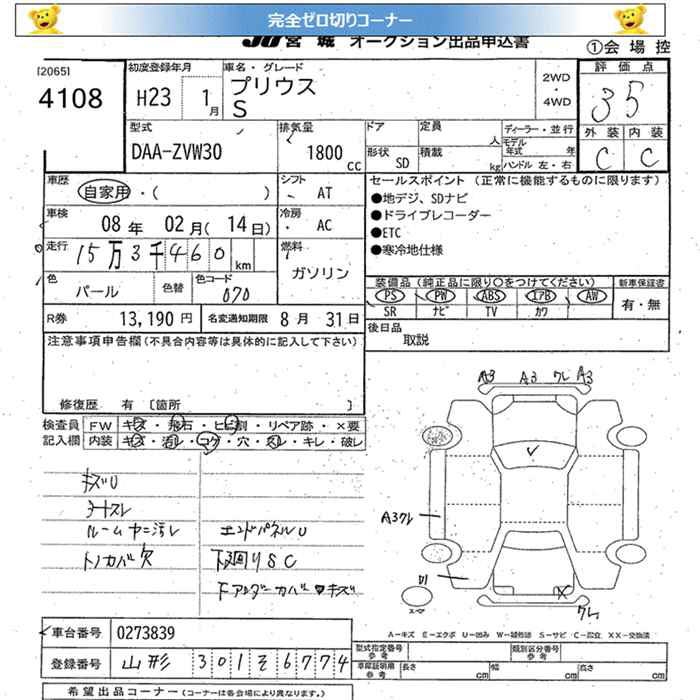 完全ゼロ切りコーナー
JU 宮 城 オークション出品申込書
①会 場 控
[2065]
4108
初度登録年月
H23 1月
車名・グレード
プリウス
S
2WD
・
4WD
評 価 点
35
外 装 内 装
C C
型式
DAA-ZVW30
排気量
1800 CC
ドア
定員 人
形状 SD
積載 kg
ディーラー・並行
モデル年式 年
ハンドル 左・右
車歴
自家用・( )
シフト
AT
車検
08年 02月( 14日)
冷房
AC
走行
15万3千460km
燃料
ガソリン
色
パール
色替
色コード
070
R券 13,190円
名変通知期限 8月 31日
セールスポイント (正常に機能するものに限ります)
●地デジ、SDナビ
●ドライブレコーダー
●ETC
●寒冷地仕様
装備品(純正品に限り○をつけてください)
新車保証書
PS PW ABS エアB AW
SR ナビ TV カワ
有・無
後日品
取説
注意事項申告欄(不具合内容等は具体的に記入して下さい)
修復歴 有 [箇所 ]
検査員 FW キズ・飛石・ヒビ割・リペア跡・×要
記入欄 内装 キズ・汚レ・コゲ・穴・スレ・キレ・破レ
キズU
シートスレ
ルームヤニ汚レ
トノカバー欠
エンドパネルU
下廻りSC
Fアンダーカバーキズ
A3 A3 ワレ A3
A3ワレ
X
ワレ
A-キズ E-エクボ U-凹み W-補修跡 S-サビ C-腐食 XX-交換済
車台番号 0273839
登録番号 山形 301 そ 6774
型式指定番号
参考
類別区分番号
参考
車庫証明用
参考
長さ cm
幅 cm
高さ cm
希望出品コーナー(コーナーは各会場により異なります。)